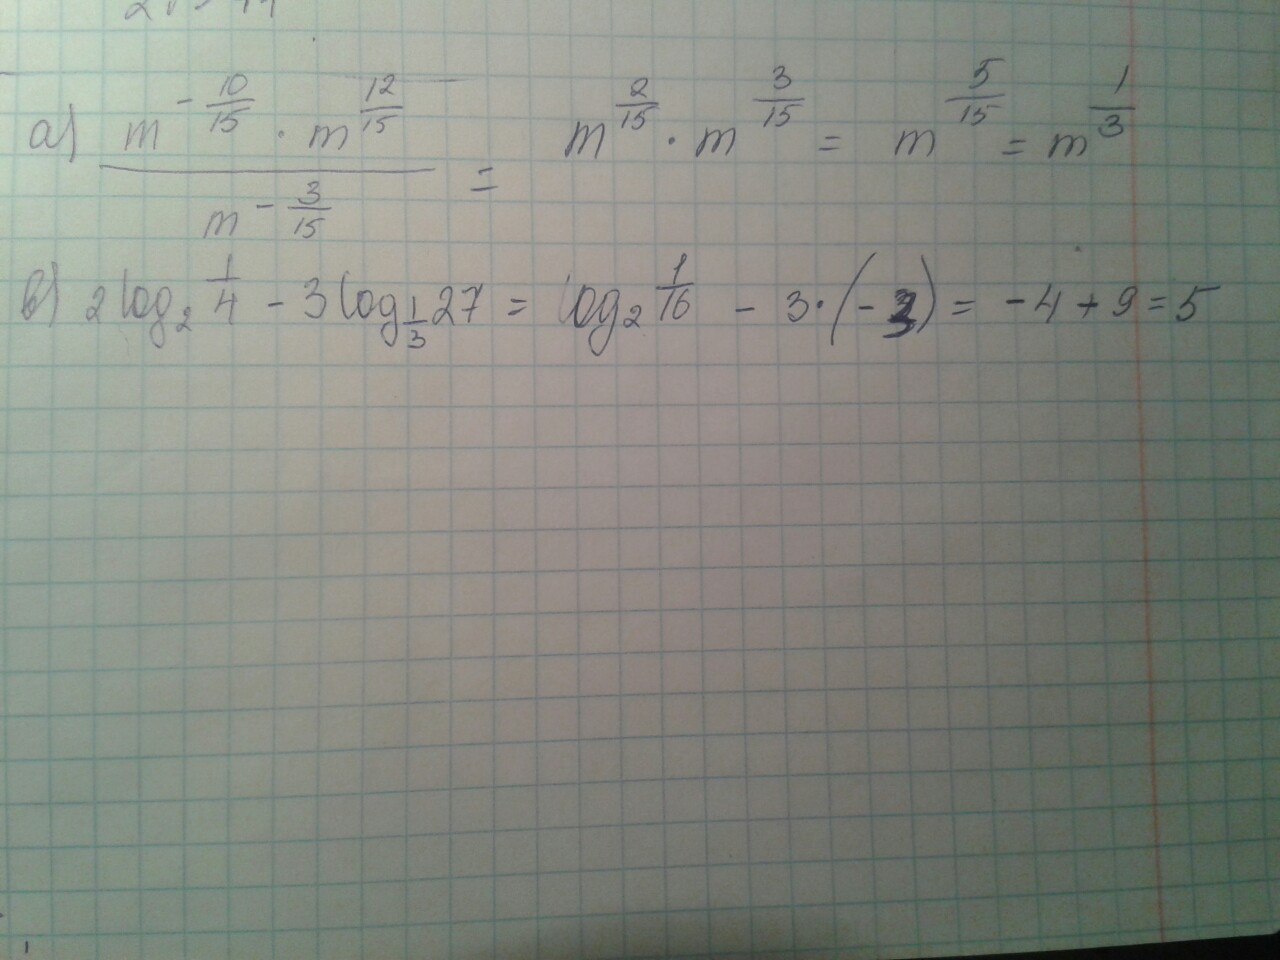 а) m^{-10/15} · m^{12/15} / m^{-3/15} = m^{2/15} · m^{3/15} = m^{5/15} = m^{1/3}
в) 2 log_2 1/4 - 3 log_{1/3} 27 = log_2 1/16 - 3 · (-3) = -4 + 9 = 5